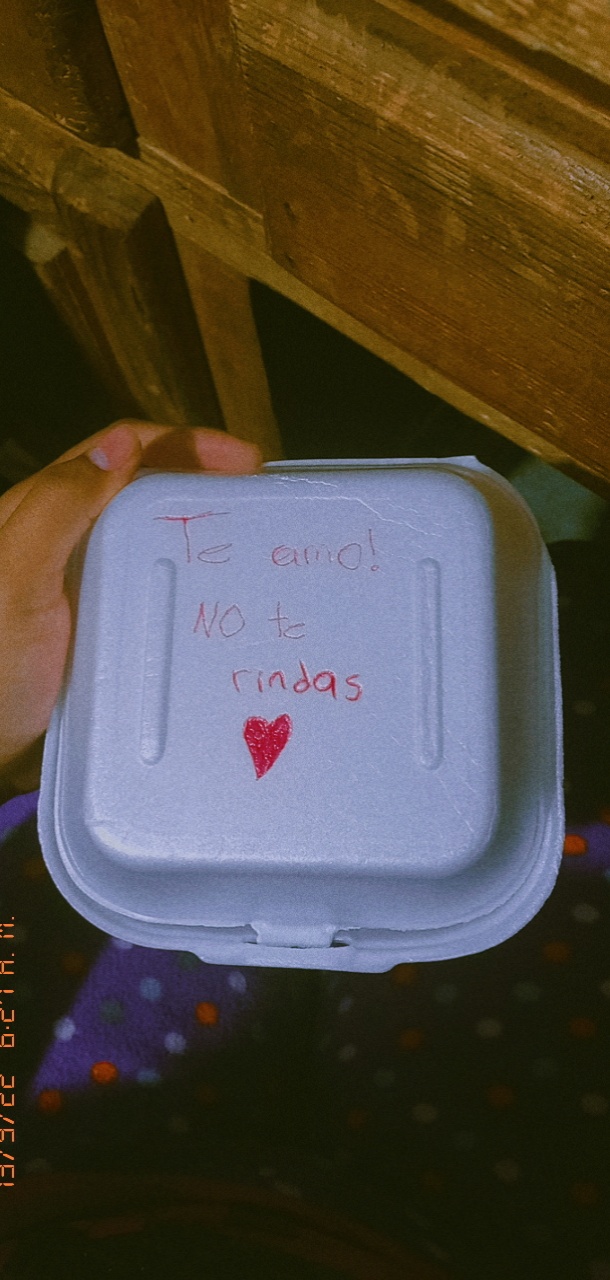 Te amo!
NO te
rindas
13/9/22 6:27 A. M.